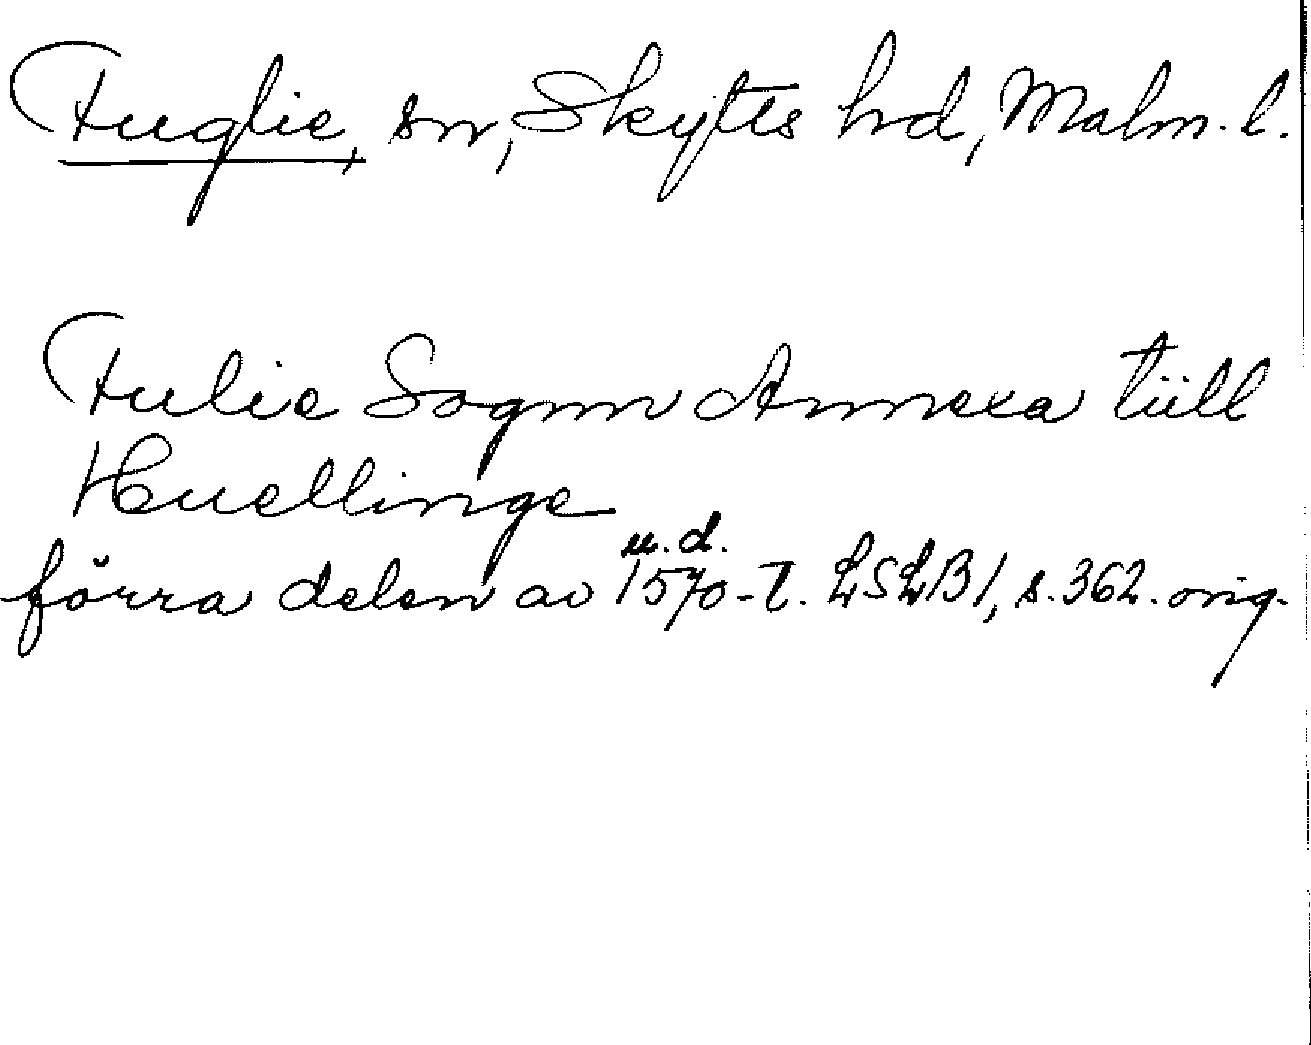 Fuglie, sn, Skytts hd, Malm. l.
Fulie Sognn Annexa tiill
Huellinge
u. d.
förra delen av 1570-t. LSLB1, s. 362. orig.